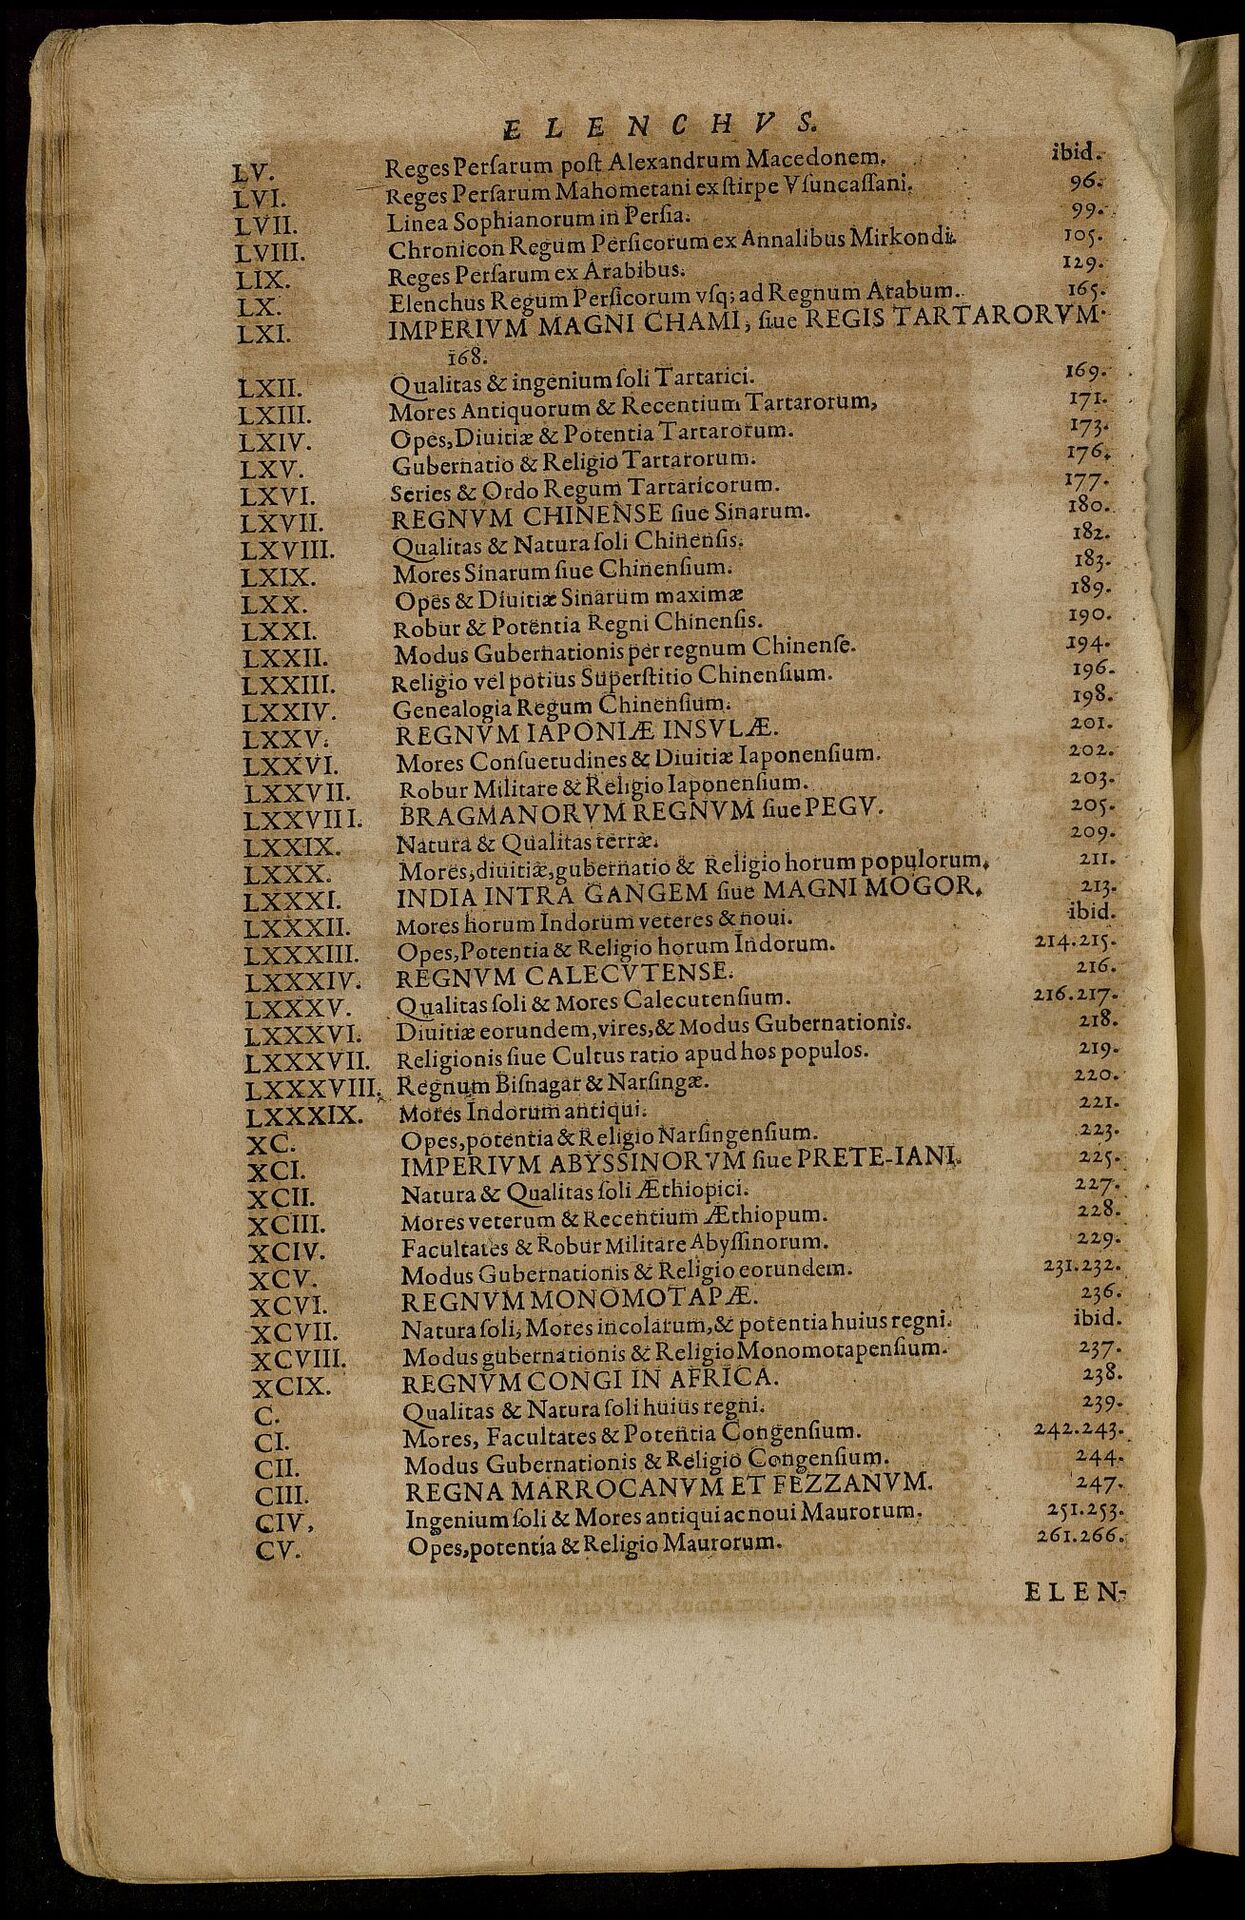 ELENCHVS.
LV. Reges Perſarum poſt Alexandrum Macedonem. ibid.
LVI. Reges Perſarum Mahometani ex ſtirpe Vſuncaſſani. 96.
LVII. Linea Sophianorum in Perſia. 99.
LVIII. Chronicon Regum Perſicorum ex Annalibus Mirkondi. 105.
LIX. Reges Perſarum ex Arabibus. 129.
LX. Elenchus Regum Perſicorum vſq; ad Regnum Arabum. 165.
LXI. IMPERIVM MAGNI CHAMI, ſiue REGIS TARTARORVM.
168.
LXII. Qualitas & ingenium ſoli Tartarici. 169.
LXIII. Mores Antiquorum & Recentium Tartarorum, 171.
LXIV. Opes, Diuitiæ & Potentia Tartarorum. 173.
LXV. Gubernatio & Religio Tartarorum. 176.
LXVI. Series & Ordo Regum Tartaricorum. 177.
LXVII. REGNVM CHINENSE ſiue Sinarum. 180.
LXVIII. Qualitas & Natura ſoli Chinenſis. 182.
LXIX. Mores Sinarum ſiue Chinenſium. 183.
LXX. Opes & Diuitiæ Sinarum maximæ 189.
LXXI. Robur & Potentia Regni Chinenſis. 190.
LXXII. Modus Gubernationis per regnum Chinenſe. 194.
LXXIII. Religio vel potius Superſtitio Chinenſium. 196.
LXXIV. Genealogia Regum Chinenſium. 198.
LXXV. REGNVM IAPONIÆ INSVLÆ. 201.
LXXVI. Mores Conſuetudines & Diuitiæ Iaponenſium. 202.
LXXVII. Robur Militare & Religio Iaponenſium. 203.
LXXVIII. BRAGMANORVM REGNVM ſiue PEGV. 205.
LXXIX. Natura & Qualitas terræ. 209.
LXXX. Mores, diuitiæ, gubernatio & Religio horum populorum. 211.
LXXXI. INDIA INTRA GANGEM ſiue MAGNI MOGOR. 213.
LXXXII. Mores horum Indorum veteres & noui. ibid.
LXXXIII. Opes, Potentia & Religio horum Indorum. 214.215.
LXXXIV. REGNVM CALECVTENSE. 216.
LXXXV. Qualitas ſoli & Mores Calecutenſium. 216.217.
LXXXVI. Diuitiæ eorundem, vires, & Modus Gubernationis. 218.
LXXXVII. Religionis ſiue Cultus ratio apud hos populos. 219.
LXXXVIII. Regnum Biſnagar & Narſingæ. 220.
LXXXIX. Mores Indorum antiqui. 221.
XC. Opes, potentia & Religio Narſingenſium. 223.
XCI. IMPERIVM ABYSSINORVM ſiue PRETE-IANI. 225.
XCII. Natura & Qualitas ſoli Æthiopici. 227.
XCIII. Mores veterum & Recentium Æthiopum. 228.
XCIV. Facultates & Robur Militare Abyſſinorum. 229.
XCV. Modus Gubernationis & Religio eorundem. 231.232.
XCVI. REGNVM MONOMOTAPÆ. 236.
XCVII. Natura ſoli, Mores incolarum, & potentia huius regni. ibid.
XCVIII. Modus gubernationis & Religio Monomotapenſium. 237.
XCIX. REGNVM CONGI IN AFRICA. 238.
C. Qualitas & Natura ſoli huius regni. 239.
CI. Mores, Facultates & Potentia Congenſium. 242.243.
CII. Modus Gubernationis & Religio Congenſium. 244.
CIII. REGNA MARROCANVM ET FEZZANVM. 247.
CIV, Ingenium ſoli & Mores antiqui ac noui Maurorum. 251.253.
CV. Opes, potentia & Religio Maurorum. 261.266.
ELEN-